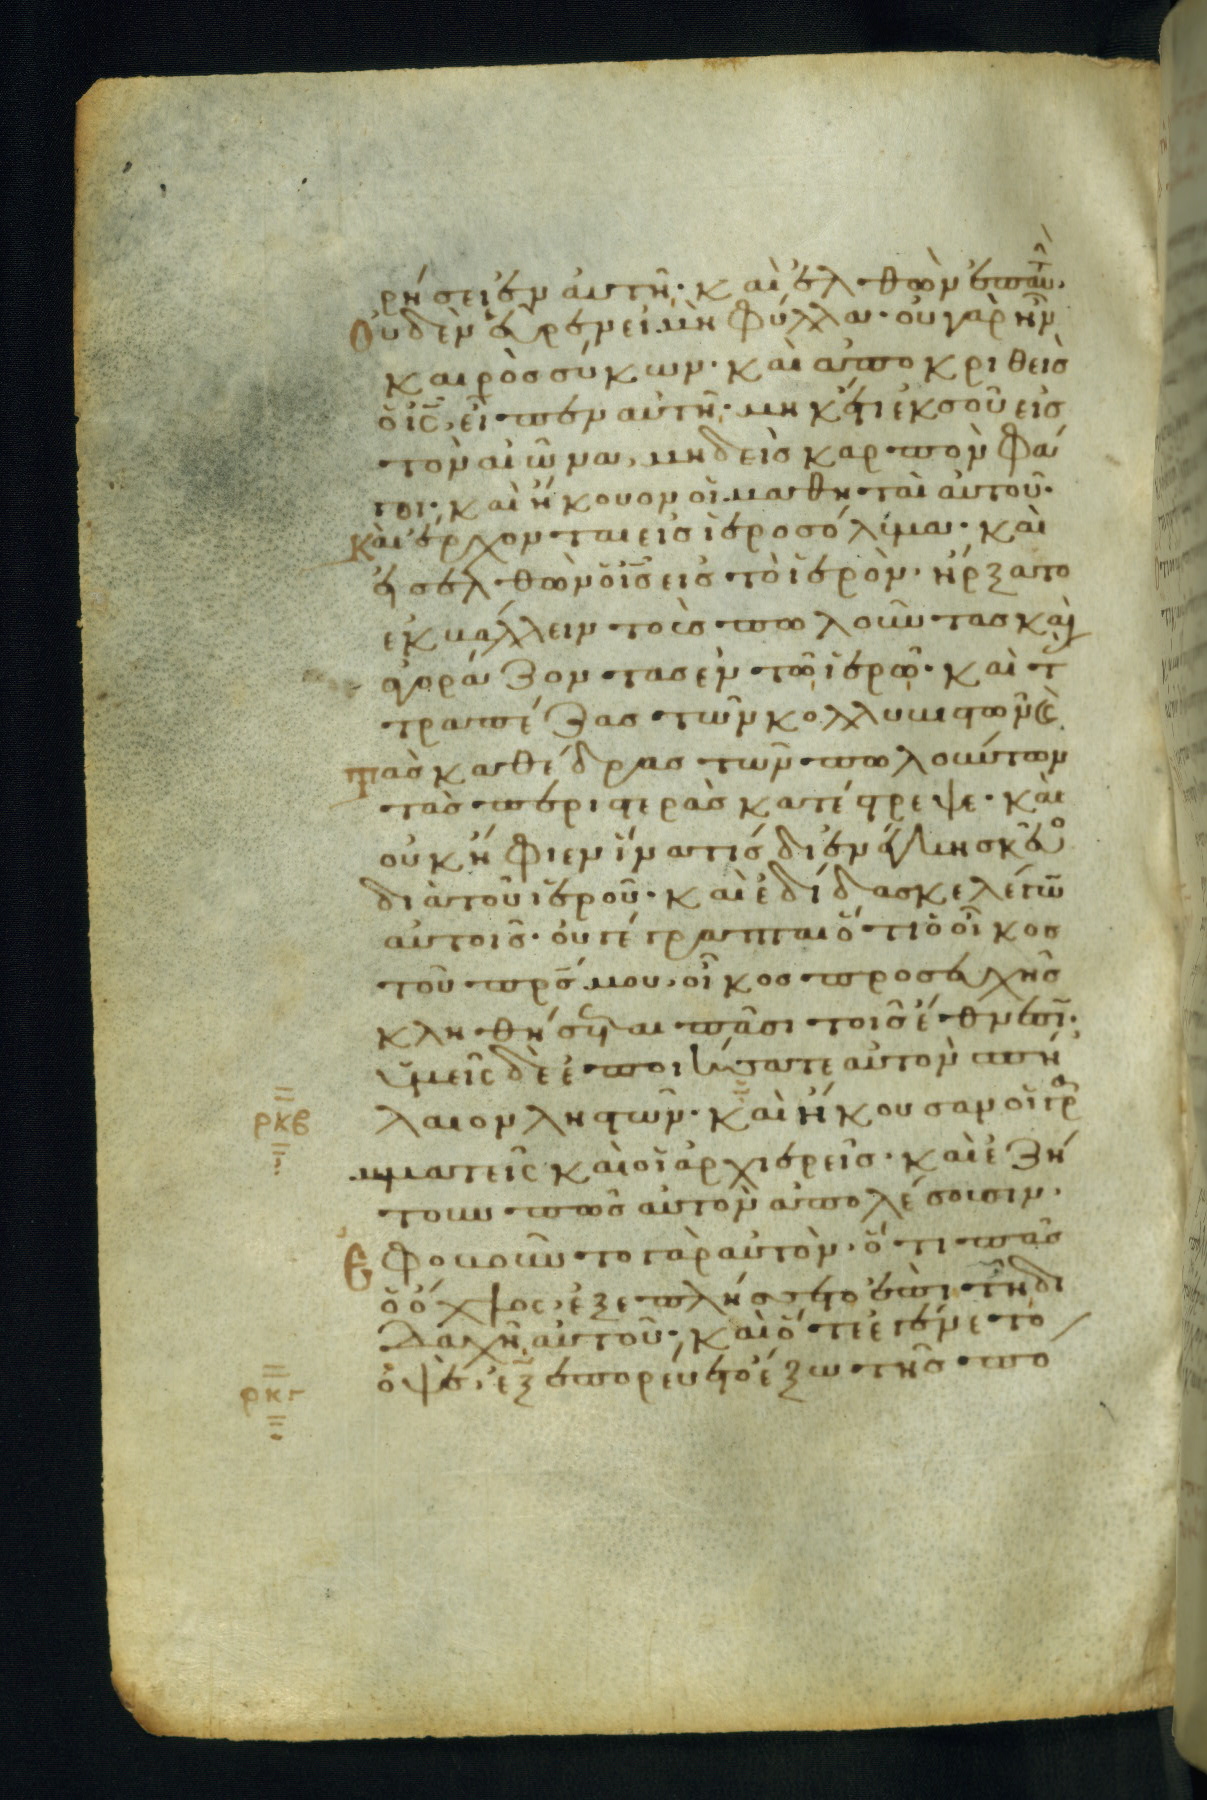 ρήσει ἐν αὐτῆ· καὶ ἐλθὼν ἐπ αυτ̂·
Οὐδὲν εὗρεν εἰ μὴ φύλλα· οὐ γὰρ ἦν
καιρὸς σύκων· καὶ ἀποκριθεὶς
ὁ ις̅, εἶπεν αὐτῆ· μηκέτι ἐκ σοῦ εἰς
τὸν αἰῶνα, μηδεὶς καρπὸν φά
γοι· καὶ ἤκουον οἱ μαθηταὶ αὐτοῦ·
Καὶ ἔρχονται εἰς ἱεροσόλιμα· καὶ
εἰσελθὼν ὁ ις̅ εἰς τὸ ἱερὸν· ἤρξατο
ἐκβάλλειν τοὺς πωλοῦντας καὶ
ἀγοράζοντας ἐν τῶ ἱερῶ· καὶ τ
τραπέζας τῶν κολλυβιστῶν (καὶ)
Τὰς καθέδρας τῶν πωλούντων
τὰς περιστερὰς κατέστρεψε· καὶ
οὐκ ἤφιεν ἵνα τίς διενέγκη σκεῦο
διὰ τοῦ ἱεροῦ· καὶ ἐδίδασκε λέγω
αὐτοῖς· οὐ γέγραπται ὅτι ὁ οἶκος
τοῦ πρς̅ μου, οἶκος προσευχῆς
κληθήσεται πᾶσι τοῖς ἔθνεσι·
ὑμεῖς δὲ ἐποιήσατε αὐτὸν σπή
λαιον ληστῶν· καὶ ἤκουσαν οἱ γρ
αμματεῖς καὶ οἱ ἀρχιερεῖς· καὶ ἐζή
τουν πῶς αὐτὸν ἀπολέσουσιν·
Ἐφοβοῦντο γὰρ αὐτὸν· ὅτι πᾶς
ὁ ὄχλος, ἐξεπλήσσετο ἐπὶ τῆ δι
δαχῆ αὐτοῦ· καὶ ὅτε ἐγένετο
ὀψὲ, ἐξεπορεύετο ἔξω τῆς πό
ρκβ
ρκγ